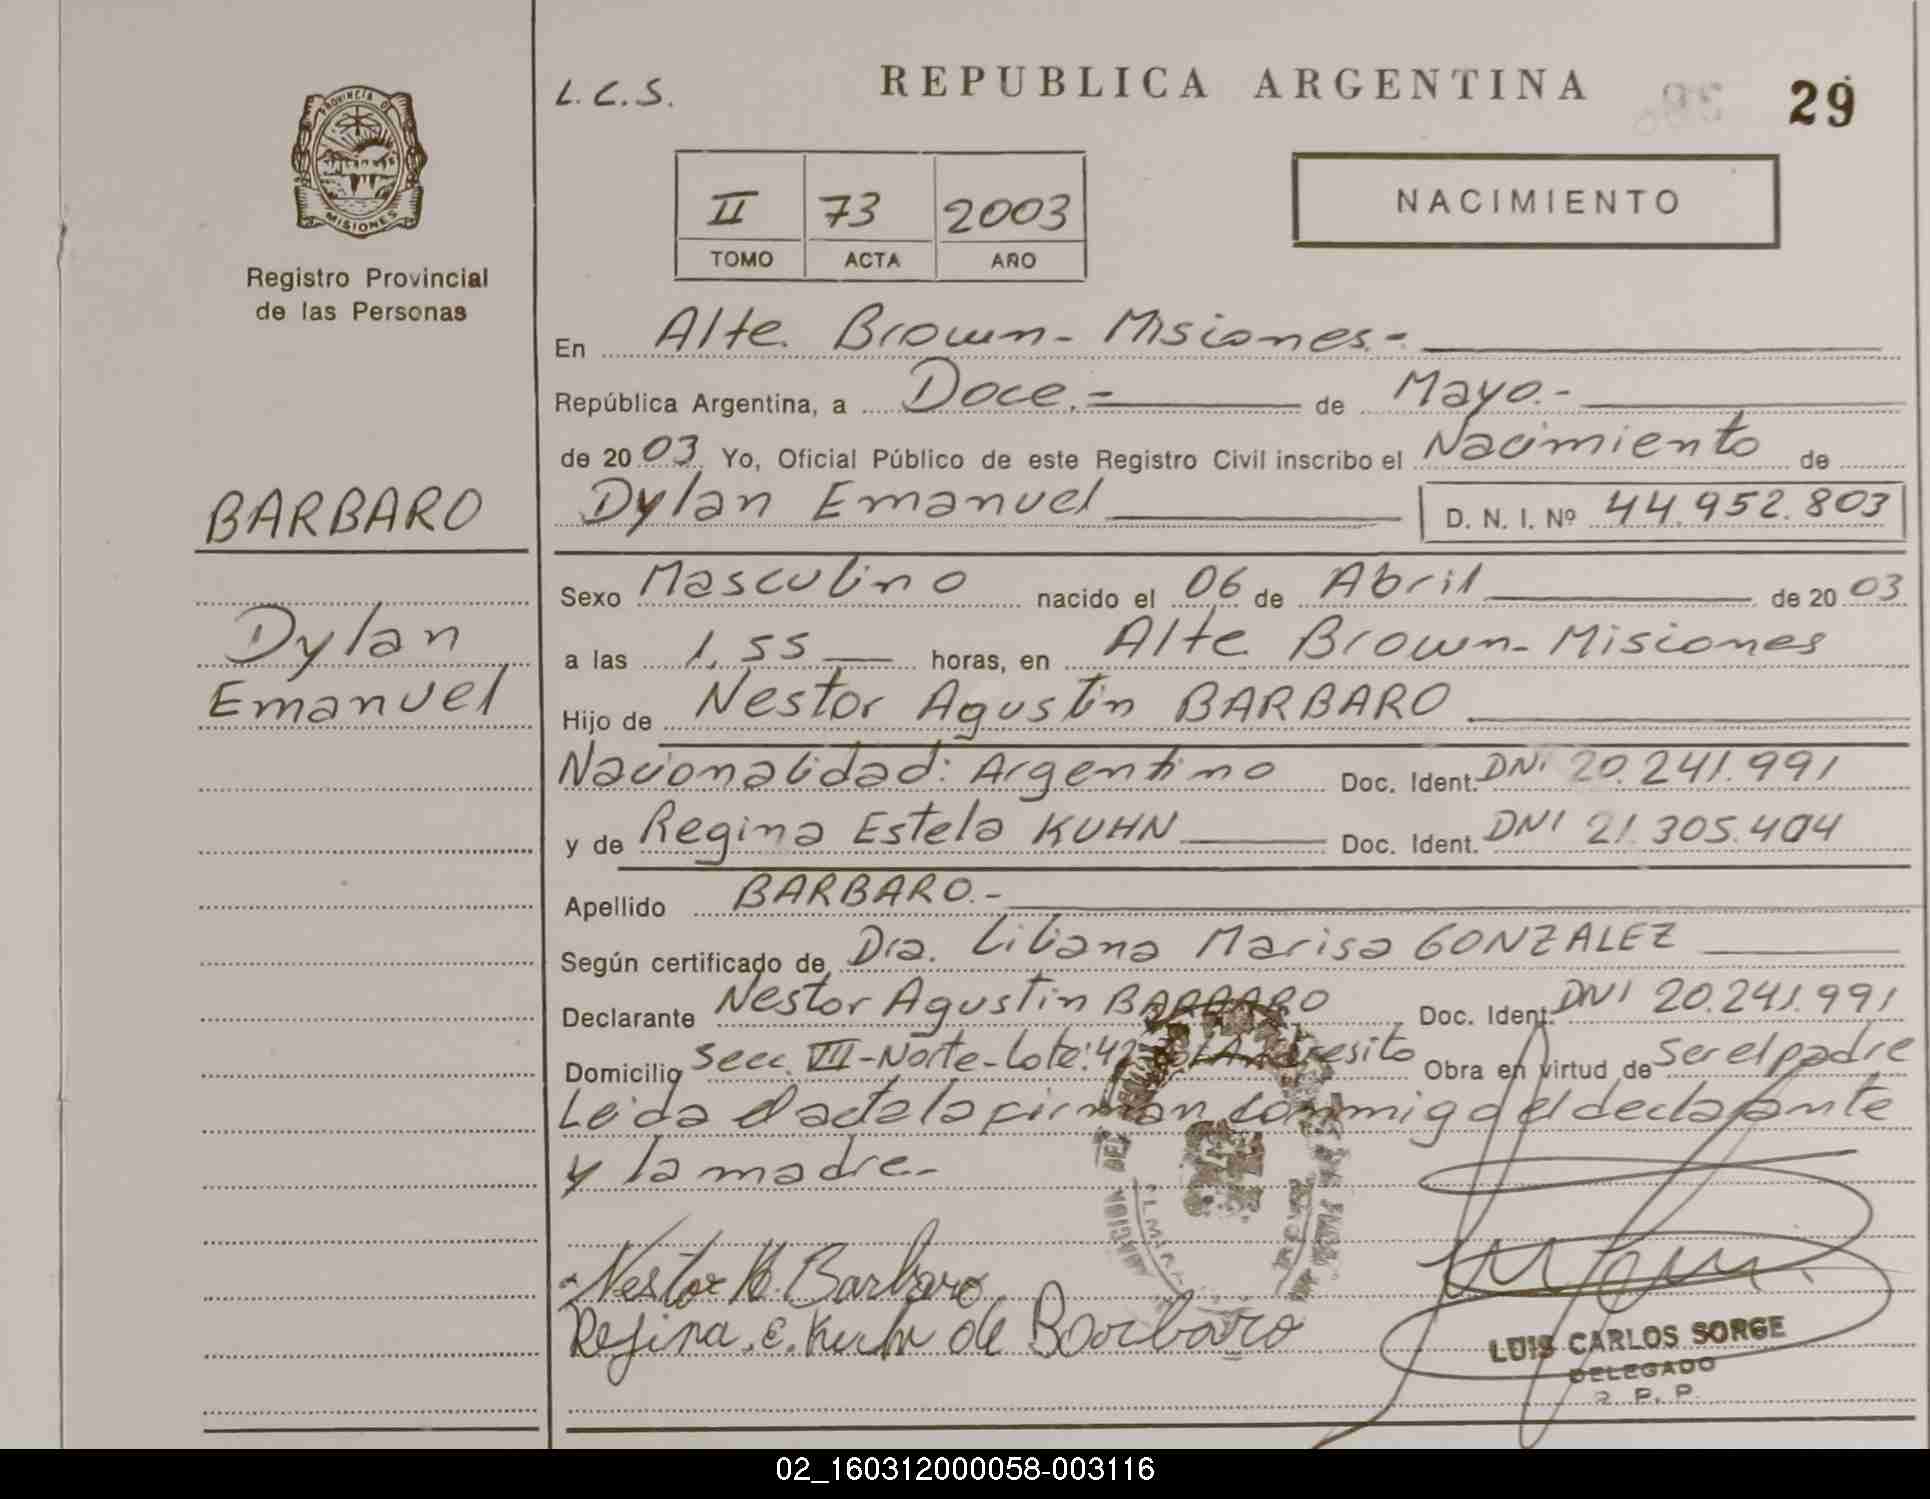 L.C.S.
REPUBLICA ARGENTINA
29
PROVINCIA DE
MISIONES
Registro Provincial
de las Personas
II 73 2003
TOMO ACTA AÑO
NACIMIENTO
En Alte. Brown - Misiones.-
República Argentina, a Doce.- de Mayo.-
de 2003 Yo, Oficial Público de este Registro Civil inscribo el Nacimiento de
BARBARO
Dylan Emanuel D. N. I. Nº 44.952.803
Sexo Masculino nacido el 06 de Abril de 2003
Dylan
a las 1,55 horas, en Alte Brown - Misiones
Emanuel
Hijo de Nestor Agustin BARBARO
Nacionalidad: Argentino Doc. Ident. DNI 20.241.991
y de Regina Estela KUHN Doc. Ident. DNI 21.305.404
Apellido BARBARO.-
Según certificado de Dra. Liliana Marisa GONZALEZ
Declarante Nestor Agustin BARBARO Doc. Ident. DNI 20.241.991
Domicilio Secc. VII - Norte - Lote: Andresito Obra en virtud de Ser el padre
Leida el acta la firman conmigo el declarante
y la madre -
Nestor A. Barbaro
Regina. E. Kuhn de Barbaro
LUIS CARLOS SORGE
DELEGADO
R. P. P.
02_160312000058-003116